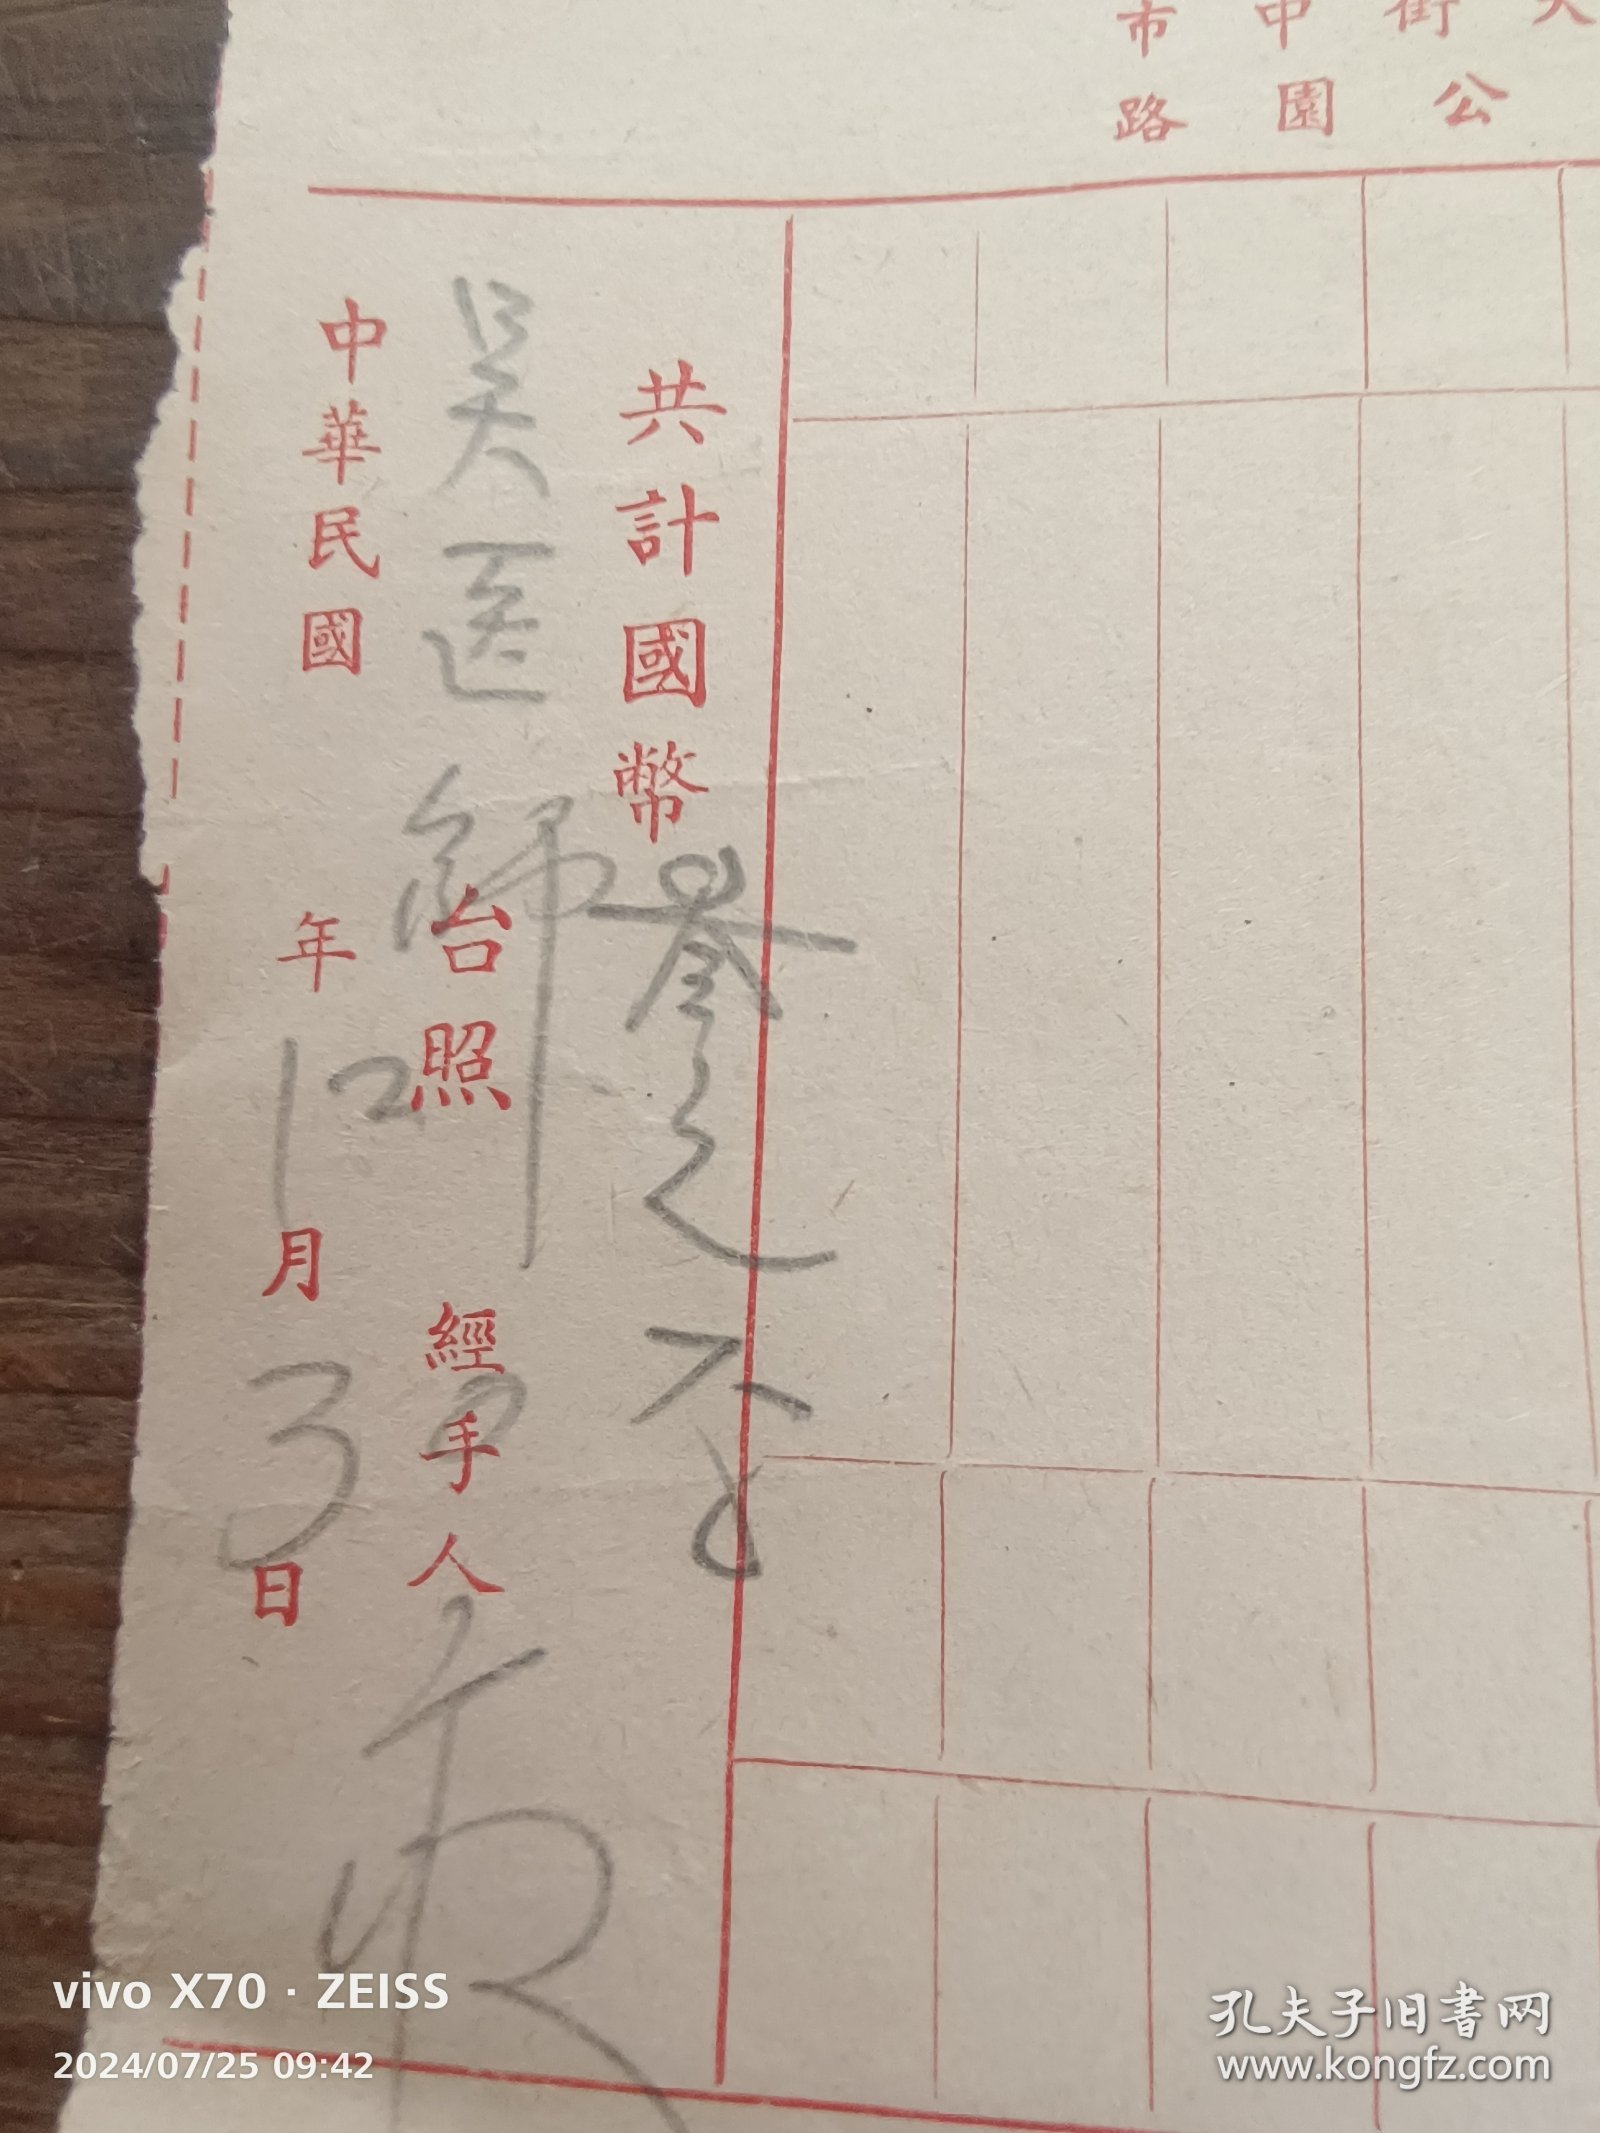 市 中 街 大
路 園 公
共計國幣叁元正
吴医師 台照 經手人
中華民國 年 12 月 3 日
vivo X70 · ZEISS
2024/07/25 09:42
孔夫子旧書网
www.kongfz.com